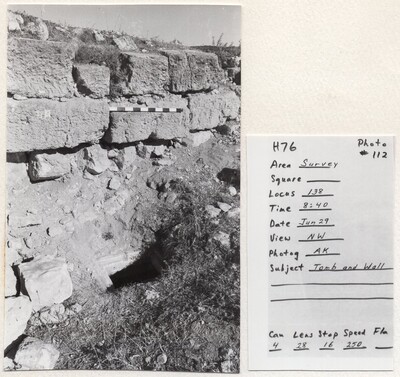 H76 Photo
# 112
Area Survey
Square
Locus 138
Time 8:40
Date Jun 29
View NW
Photog AK
Subject Tomb and Wall
Cam Lens Stop Speed Flm
4 28 16 250